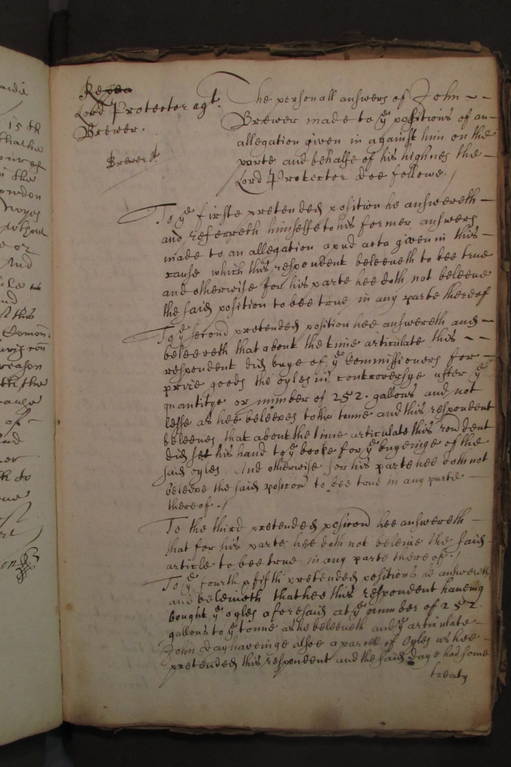 Lord Protector agt.
Brewer.
Brewer
The personall answers of John
Brewer made to ye positions of an
allegation given in against him on the
parte and behalfe of his highnes the
Lord Protector doe followe /
To ye firste pretended position he answereth
and referreth himselfe to his former answers
made to an allegation apud acta given in this
cause which this respondent beleeveth to bee true
and otherwise for his parte hee doth not beleeve
the said position to bee true in any parte thereof
To ye second pretended position hee answereth and
beleeveth that about the time articulate this
respondent did buye of ye Commissioners for
prize goods the oyles in controversye after ye
quantitye or number of 252. gallons and not
lesse as hee beleeves to ye tunne and this respondent
beleeves that about the time articulate this rendent
did set his hand to ye booke for ye buyeinge of the
said oyles And otherwise for his parte hee doth not
beleeve the said position to bee true in any parte
thereof /
To the third pretended position hee answereth
that for his parte hee doth not beleeve the said
article to bee true in any parte thereof /
To ye fourth & fifth pretended positions he answereth
and beleeveth that hee this respondent haveing
bought ye oyles aforesaid at ye number of 252
gallons to ye tonne as he beleeveth and ye articulate
John Day haveinge alsoe a parcell of oyles as hee
pretended this respondent and the said Daye had some
treaty